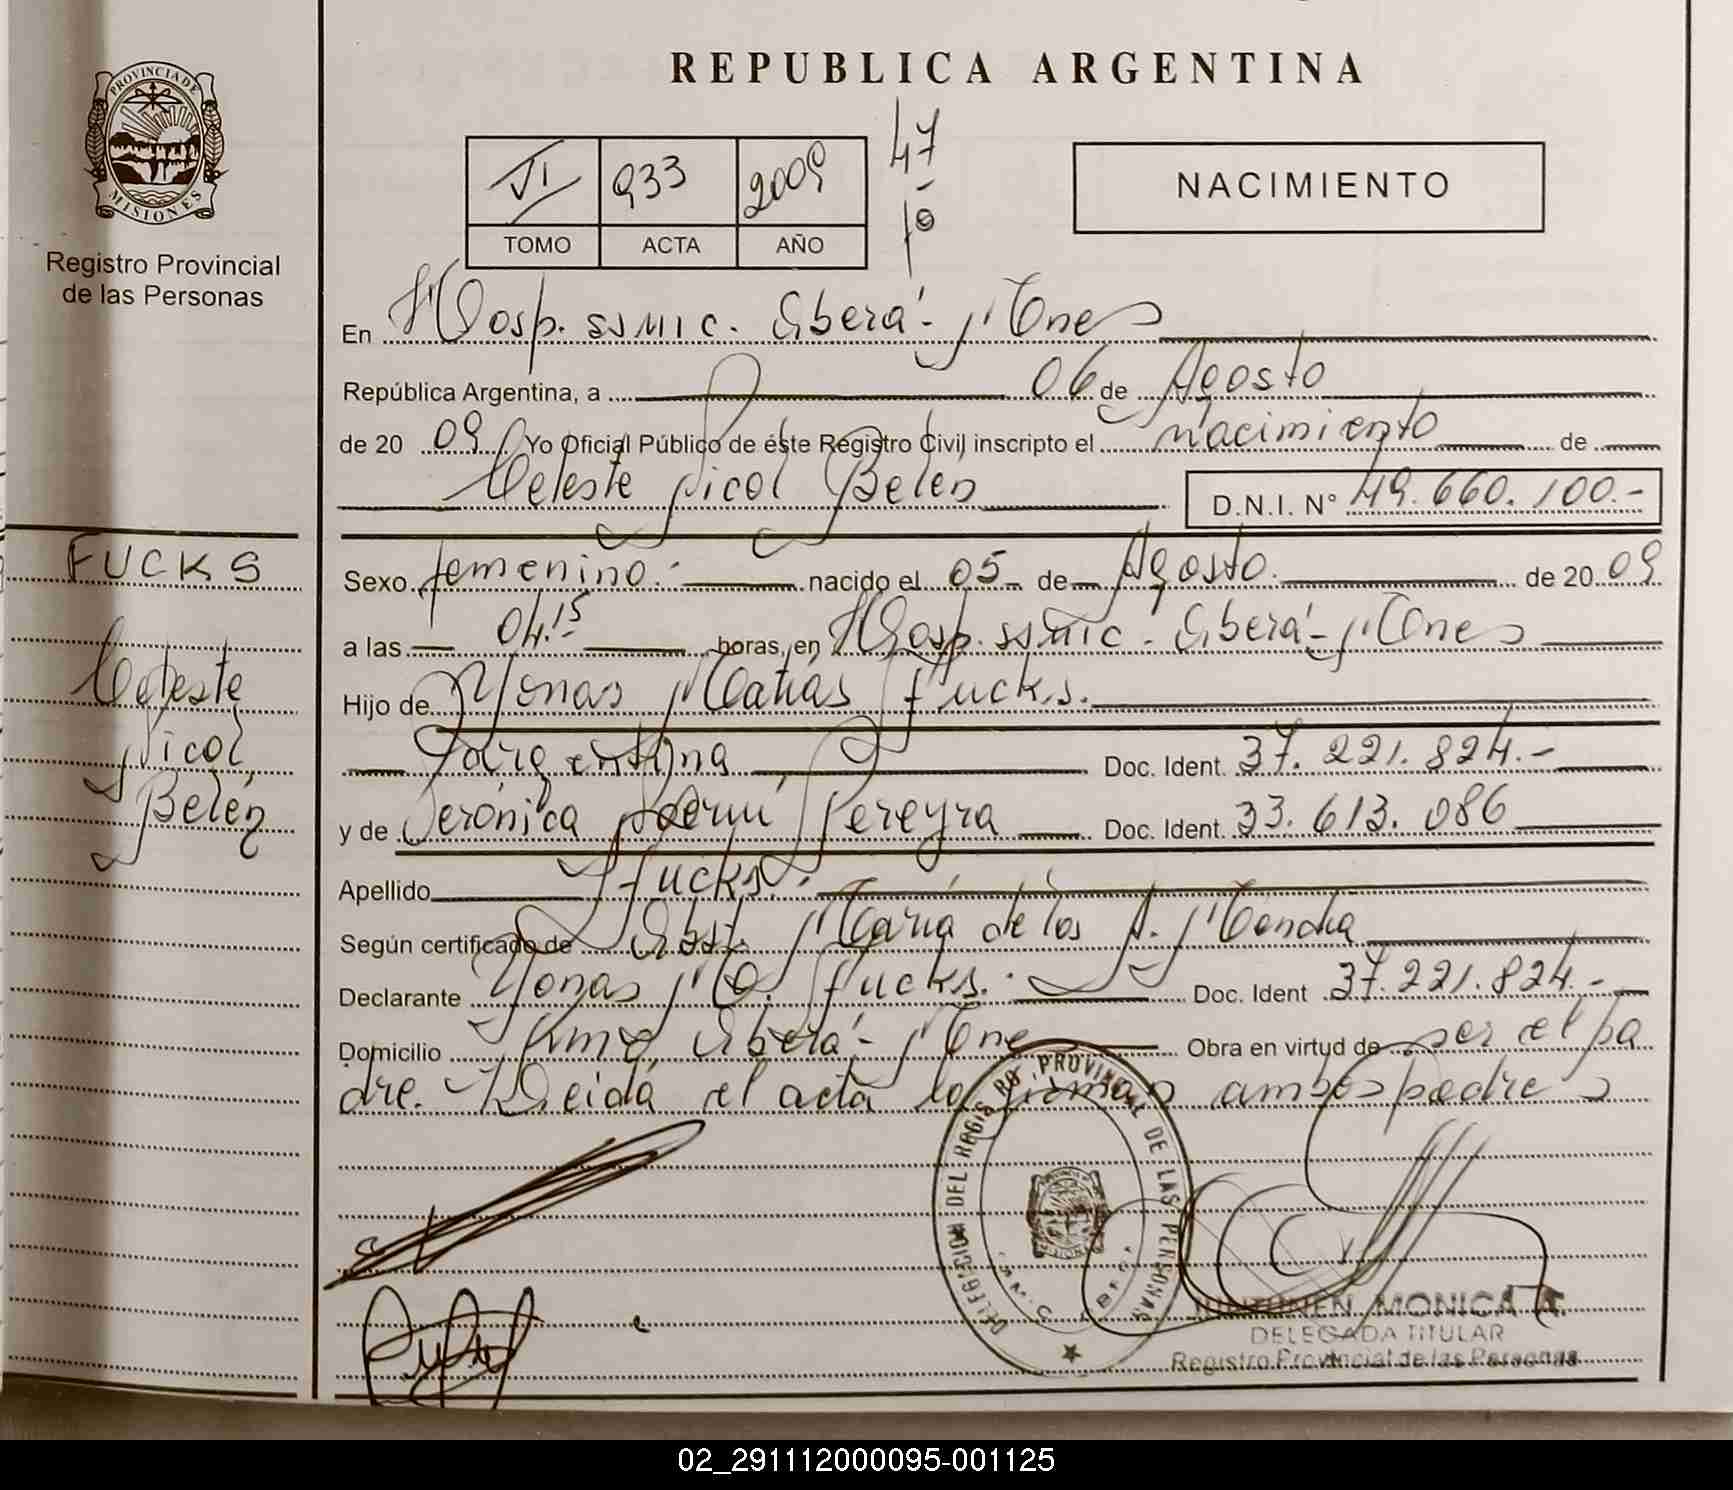 REPUBLICA ARGENTINA
PROVINCIA DE
MISIONES
Registro Provincial
de las Personas
VI 933 2009
TOMO ACTA AÑO
47
10
NACIMIENTO
En Hosp. SSMIC. Oberá - Mnes
República Argentina, a 06 de Agosto
de 20 09 Yo Oficial Público de éste Registro Civil inscripto el nacimiento de
Celeste Nicol Belén
D.N.I. Nº 49.660.100.-
FUCKS
Celeste
Nicol
Belén
Sexo femenino.- nacido el 05 de Agosto. de 20 09
a las 04.15 horas, en Hosp. SSMIC. Oberá - Mnes
Hijo de Yonas Matías Fucks.
argentina Doc. Ident. 37.221.824.-
y de Verónica Noemí Pereyra Doc. Ident. 33.613.086
Apellido Fucks.
Según certificado de Obst. María de los A.
Declarante Yonas M. Fucks.- Doc. Ident 37.221.824.-
Domicilio Oberá - Mne Obra en virtud de ser el pa
dre. Leída el acta la firman ambos padres
DELEGACION DEL REGISTRO PROVINCIAL DE LAS PERSONAS
MONICA
DELEGADA TITULAR
Registro Provincial de las Personas
02_291112000095-001125